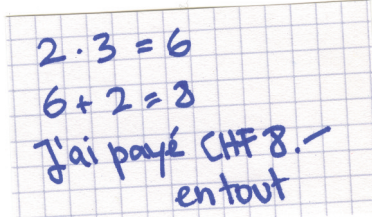 2 · 3 = 6
6 + 2 = 8
J'ai payé CHF 8.–
en tout